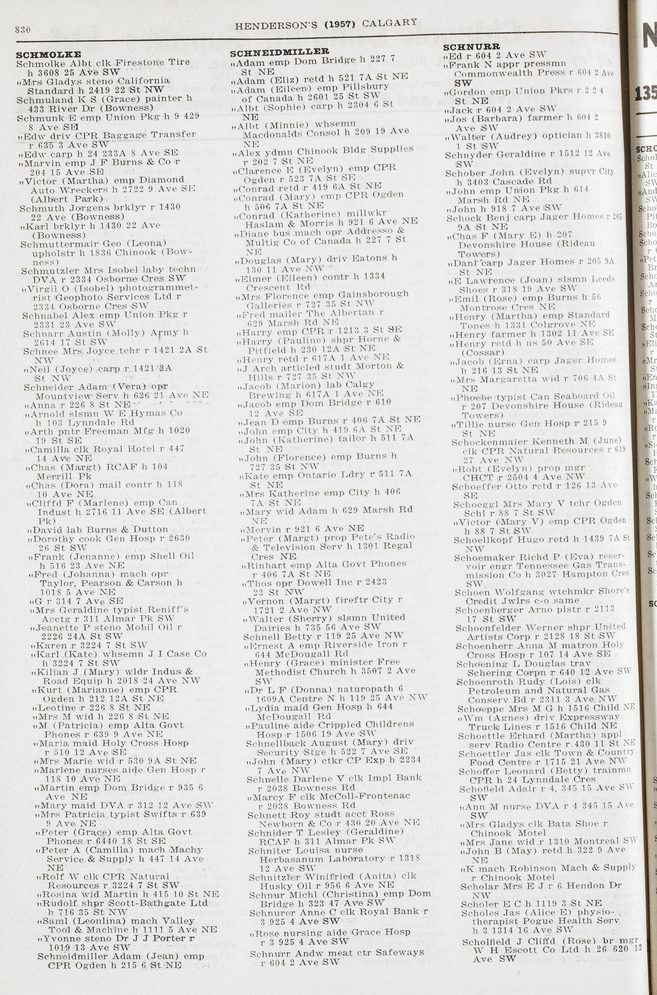 830
HENDERSON'S (1957) CALGARY
SCHMOLKE
Schmolke Albt clk Firestone Tire
h 3608 25 Ave SW
„Mrs Gladys steno California
Standard h 2419 22 St NW
Schmuland K S (Grace) painter h
433 River Dr (Bowness)
Schmunk E emp Union Pkg h 9 429
8 Ave SE
„Edw driv CPR Baggage Transfer
r 635 3 Ave SW
„Edw carp h 24 233A 8 Ave SE
„Marvin emp J F Burns & Co r
204 15 Ave SE
„Victor (Martha) emp Diamond
Auto Wreckers h 2722 9 Ave SE
(Albert Park)
Schmuth Jorgens brklyr r 1430
22 Ave (Bowness)
„Karl brklyr h 1430 22 Ave
(Bowness)
Schmuttermair Geo (Leona)
upholstr h 1836 Chinook (Bow-
ness)
Schmutzler Mrs Isobel laby techn
DVA r 2334 Osborne Cres SW
„Virgil O (Isobel) photogrammet-
rist Geophoto Services Ltd r
2334 Osborne Cres SW
Schnabel Alex emp Union Pkg r
2331 23 Ave SW
Schnarr Austin (Molly) Army h
2614 17 St SW
Schnee Mrs Joyce tchr r 1421 2A St
NW
„Neil (Joyce) carp r 1421 2A
St NW
Schneider Adam (Vera) opr
Mountview Serv h 626 21 Ave NE
„Anna r 226 8 St NE
„Arnold slsmn W E Hymas Co
h 103 Lynndale Rd
„Arth pntr Freeman Mfg h 1020
19 St SE
„Camilla clk Royal Hotel r 447
14 Ave NE
„Chas (Margt) RCAF h 104
Merrill Pk
„Chas (Dora) mail contr h 118
10 Ave NE
„Cliffd F (Marlene) emp Can
Indust h 2716 11 Ave SE (Albert
Pk)
„David lab Burns & Dutton
„Dorothy cook Gen Hosp r 2630
26 St SW
„Frank (Jenanne) emp Shell Oil
h 516 23 Ave NE
„Fred (Johanna) mach opr
Taylor, Pearson & Carson h
1018 5 Ave NE
„G r 314 7 Ave SE
„Mrs Geraldine typist Reniff's
Acctg r 311 Almar Pk SW
„Jeanette P steno Mobil Oil r
2226 24A St SW
„Karen r 3224 7 St SW
„Karl (Kate) whsemn J I Case Co
h 3224 7 St SW
„Kilian J (Mary) wldr Indus &
Road Equip h 2018 24 Ave NW
„Kurt (Marianne) emp CPR
Ogden h 212 12A St NE
„Leotine r 226 8 St NE
„Mrs M wid h 226 8 St NE
„M (Patricia) emp Alta Govt
Phones r 639 9 Ave NE
„Maria maid Holy Cross Hosp
r 510 12 Ave SE
„Mrs Marie wid r 530 9A St NE
„Marlene nurses aide Gen Hosp r
118 10 Ave NE
„Martin emp Dom Bridge r 935 6
Ave NE
„Mary maid DVA r 312 12 Ave SW
„Mrs Patricia typist Swifts r 639
9 Ave NE
„Peter (Grace) emp Alta Govt
Phones r 6440 18 St SE
„Peter A (Camilla) mach Machy
Service & Supply h 447 14 Ave
NE
„Rolf W clk CPR Natural
Resources r 3224 7 St SW
„Rosina wid Martin h 415 10 St NE
„Rudolf shpr Scott-Bathgate Ltd
h 716 35 St NW
„Saml (Leonlina) mach Valley
Tool & Machine h 1111 5 Ave NE
„Yvonne steno Dr J J Porter r
1019 13 Ave SW
Schneidmiller Adam (Jean) emp
CPR Ogden h 215 6 St NE
SCHNEIDMILLER
„Adam emp Dom Bridge h 227 7
St NE
„Adam (Eliz) retd h 521 7A St NE
„Adam (Eileen) emp Pillsbury
of Canada h 2601 25 St SW
„Albt (Sophie) carp h 2304 6 St
NE
„Albt (Minnie) whsemn
Macdonalds Consol h 209 19 Ave
NE
„Alex ydmn Chinook Bldg Supplies
r 202 7 St NE
„Clarence E (Evelyn) emp CPR
Ogden r 523 7A St SE
„Conrad retd r 419 6A St NE
„Conrad (Mary) emp CPR Ogden
h 506 7A St NE
„Conrad (Katherine) millwkr
Haslam & Morris h 921 6 Ave NE
„Diane bus mach opr Addresso &
Multig Co of Canada h 227 7 St
NE
„Douglas (Mary) driv Eatons h
130 11 Ave NW
„Elmer (Eileen) contr h 1334
Crescent Rd
„Mrs Florence emp Gainsborough
Galleries r 727 35 St NW
„Fred mailer The Albertan r
629 Marsh Rd NE
„Harry emp CPR r 1213 3 St SE
„Harry (Pauline) shpr Horne &
Pitfield h 230 12A St NE
„Henry retd r 617A 1 Ave NE
„J Arch articled studt Morton &
Hills r 727 35 St NW
„Jacob (Marion) lab Calgy
Brewing h 617A 1 Ave NE
„Jacob emp Dom Bridge r 610
12 Ave SE
„Jean D emp Burns r 406 7A St NE
„John emp City h 419 6A St NE
„John (Katherine) tailor h 511 7A
St NE
„John (Florence) emp Burns h
727 35 St NW
„Kate emp Ontario Ldry r 511 7A
St NE
„Mrs Katherine emp City h 406
7A St NE
„Mary wid Adam h 629 Marsh Rd
NE
„Mervin r 921 6 Ave NE
„Peter (Margt) prop Pete's Radio
& Television Serv h 1301 Regal
Cres NE
„Rinhart emp Alta Govt Phones
r 406 7A St NE
„Thos opr Dowell Inc r 2423
23 St NW
„Vernon (Margt) fireftr City r
1721 2 Ave NW
„Walter (Sherry) slsmn United
Dairies h 735 56 Ave SW
Schnell Betty r 119 25 Ave NW
„Ernest A emp Riverside Iron r
644 McDougall Rd
„Henry (Grace) minister Free
Methodist Church h 3507 2 Ave
SW
„Dr L F (Donna) naturopath 6
1609A Centre N h 119 25 Ave NW
„Lydia maid Gen Hosp h 644
McDougall Rd
„Pauline aide Crippled Childrens
Hosp r 1506 19 Ave SW
Schnellback August (Mary) driv
Security Stge h 522 7 Ave SE
„John (Mary) ctkr CP Exp h 2234
7 Ave NW
Schnelle Darlene V clk Impl Bank
r 2038 Bowness Rd
„Marcy F clk McColl-Frontenac
r 2038 Bowness Rd
Schnett Roy studt acct Ross
Newborn & Co r 430 20 Ave NE
Schnider T Lesley (Geraldine)
RCAF h 311 Almar Pk SW
Schniter Louisa nurse
Herbasanum Laboratory r 1318
12 Ave SW
Schnitzler Winifried (Anita) clk
Husky Oil r 956 6 Ave NE
Schnur Michl (Christina) emp Dom
Bridge h 323 47 Ave SW
Schnurer Anne C clk Royal Bank r
3 925 4 Ave SW
„Rose nursing aide Grace Hosp
r 3 925 4 Ave SW
Schnurr Andw meat ctr Safeways
r 604 2 Ave SW
SCHNURR
„Ed r 604 2 Ave SW
„Frank N appr pressmn
Commonwealth Press r 604 2 Ave
SW
„Gordon emp Union Pkrs r 2 2 4
St NE
„Jack r 604 2 Ave SW
„Jos (Barbara) farmer h 604 2
Ave SW
„Walter (Audrey) optician h 3810
1 St SW
Schnyder Geraldine r 1512 12 Ave
SW
Schober John (Evelyn) supvr City
h 3403 Cascade Rd
„John emp Union Pkg h 614
Marsh Rd NE
„John h 918 7 Ave SW
Schock Benj carp Jager Homes r 205
9A St NE
„Chas F (Mary E) h 207
Devonshire House (Rideau
Towers)
„Danl carp Jager Homes r 205 9A
St NE
„E Lawrence (Joan) slsmn Leeds
Shoes r 318 19 Ave SW
„Emil (Rose) emp Burns h 56
Montrose Cres NE
„Henry (Martha) emp Standard
Tons h 1331 Colgrove NE
„Henry farmer h 1302 11 Ave SE
„Henry retd h ns 50 Ave SE
(Cossar)
„Jacob (Erna) carp Jager Homes
h 216 13 St NE
„Mrs Margaretta wid r 706 4A St
NE
„Phoebe typist Can Seaboard Oil
r 207 Devonshire House (Rideau
Towers)
„Tillie nurse Gen Hosp r 215 9
St NE
Schockenmaier Kenneth M (June)
clk CPR Natural Resources r 619
27 Ave NW
„Robt (Evelyn) prop mgr
CHCT r 2504 4 Ave NW
Schoeffer Otto retd r 126 13 Ave
SE
Schoeggl Mrs Mary V tchr Ogden
Schl r 88 7 St SW
„Victor (Mary V) emp CPR Ogden
h 88 7 St SW
Schoellkopf Hugo retd h 1439 7A St
NW
Schoemaker Richd P (Eva) reser-
voir engr Tennessee Gas Trans-
mission Co h 3027 Hampton Cres
SW
Schoen Wolfgang wtchmkr Shore's
Credit Jwlrs c-o same
Schoenberger Arno plstr r 2113
17 St SW
Schoenfelder Werner shpr United
Artists Corp r 2128 18 St SW
Schoenherr Anna M matron Holy
Cross Hosp r 107 14 Ave SE
Schoening L Douglas tray
Schering Corpn r 640 12 Ave SW
Schoenroth Rudy (Lois) clk
Petroleum and Natural Gas
Conserv Bd r 2311 3 Ave NW
Schoeppe Mrs M G h 1516 Child NE
„Wm (Agnes) driv Expressway
Truck Lines r 1516 Child NE
Schoettle Erhard (Martha) appl
serv Radio Centre r 430 11 St NE
Schoettler Jas clk Town & Country
Food Centre r 1715 21 Ave NW
Schoffer Leonard (Betty) trainmn
CPR h 24 Lynndale Cres
Schofield Adair r 4, 345 15 Ave SW
SW
„Ann M nurse DVA r 4 345 15 Ave
SW
„Mrs Gladys clk Bata Shoe r
Chinook Motel
„Mrs Jane wid r 1310 Montreal SW
„John B (May) retd h 322 9 Ave
NE
„K mach Robinson Mach & Supply
r Chinook Motel
Scholar Mrs E J r 6 Hendon Dr
NW
Scholer E C h 1119 3 St NE
Scholes Jas (Alice E) physio-
therapist Pogue Health Serv
h 3 1314 16 Ave SW
Scholfield J Cliffd (Rose) br mgr
W H Escott Co Ltd h 26 620 12
Ave SW
N
135
SCHO